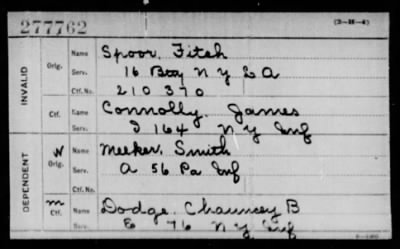 277762
(3-H-4)
INVALID
Orig.
Name Spoor, Fitch
Serv. 16 Btry N Y L A
Ctf. No. 210 370
Ctf.
Name Connolly, James
I 164 N Y Inf
DEPENDENT
W
Orig.
Name Meeker, Smith
Serv. A 56 Pa Inf
Ctf. No.
m
Ctf.
Name Dodge, Chauncey B
Serv. E 76 N Y Inf